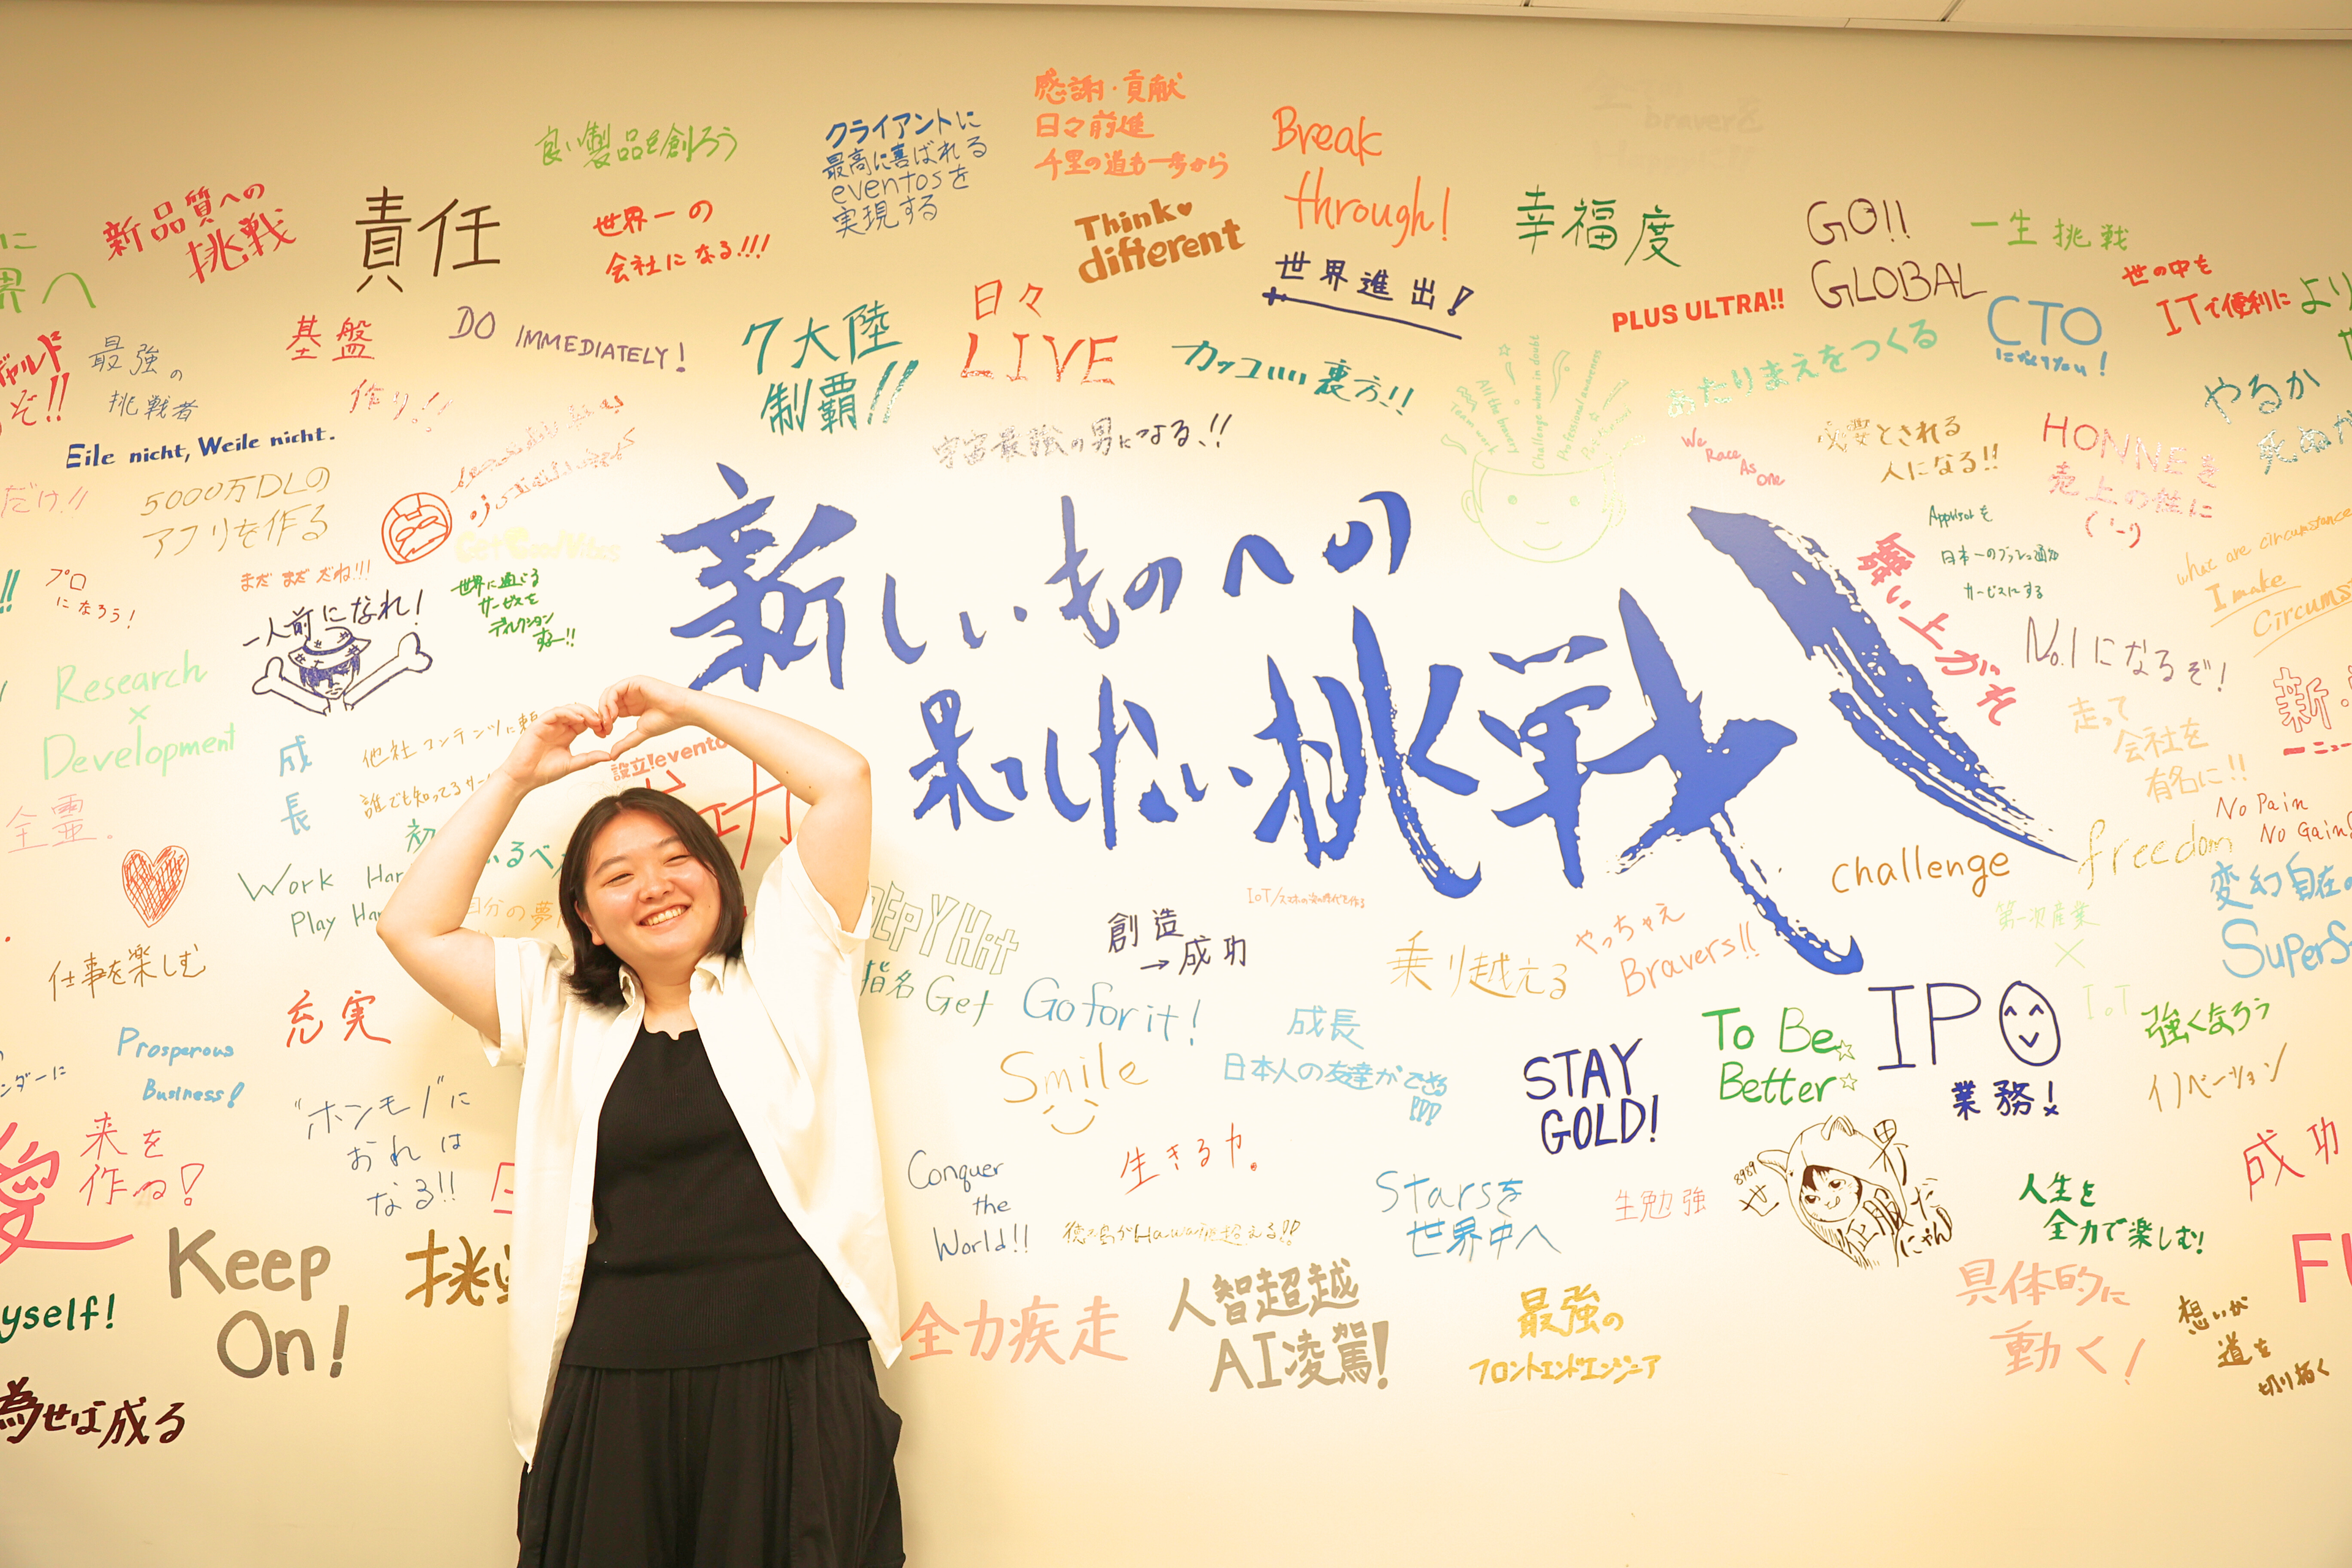 良い製品を創ろう
クライアントに
最高に喜ばれる
eventosを
実現する
感謝・貢献
日々前進
千里の道も一歩から
Break
through!
新品質への
挑戦
責任
世界一の
会社になる!!!
Think♥
different
世界進出!
幸福度
GO!!
GLOBAL
一生挑戦
世の中を
ITで便利に
より
に
界へ
最強の
挑戦者
基盤
作り!!
DO IMMEDIATELY!
7大陸
制覇!!
日々
LIVE
カッコいい裏方!!
PLUS ULTRA!!
CTO
になりたい!
あたりまえをつくる
やるか
ぞ!!
Eile nicht, Weile nicht.
宇宙最強の男になる!!
Team work
All the bravery
Challenge when in doubt
Professional awareness
We
Race
As
One
必要とされる
人になる!!
HONNEを
売上の柱に
だけ!!
5000万DLの
アプリを作る
Get Good Vibes
新しいものへの
果てしない挑戦
舞い上がれ
まだまだだね!!!
一人前になれ!
世界に通じる
サービスを
ディレクション
するー!!
プロ
になろう!
What are circumstance
I make
Circums
No.1になるぞ!
Research
×
Development
成長
他社コンテンツに
誰でも知ってる
設立!evento
走って
会社を
有名に!!
No Pain
No Gain
全霊。
Work Har
Play Har
自分の夢
IoT/スマホの次の時代を作る
Challenge
freedom
変幻自在の
SuperS
仕事を楽しむ
充実
DEEPYHit
指名Get
創造
→成功
Go for it!
乗り越える
やっちゃえ
Bravers!!
第一次産業
×
IoT
Prosperous
Business!
Smile
成長
日本人の友達ができる
!!!
STAY
GOLD!
To Be
Better
IPO
業務!
強くなろう
イノベーション
愛
来を
作る!
"ホンモノ"に
おれは
なる!!
Conquer
the
World!!
生きる力。
徳之島がHawaiiを超える!!
Starsを
世界中へ
生勉強
8989
世界征服だにゃん
人生を
全力で楽しむ!
成功
Keep
On!
yself!
為せば成る
全力疾走
人智超越
AI凌駕!
最強の
フロントエンドエンジニア
具体的に
動く!
想いが
道を
切り拓く